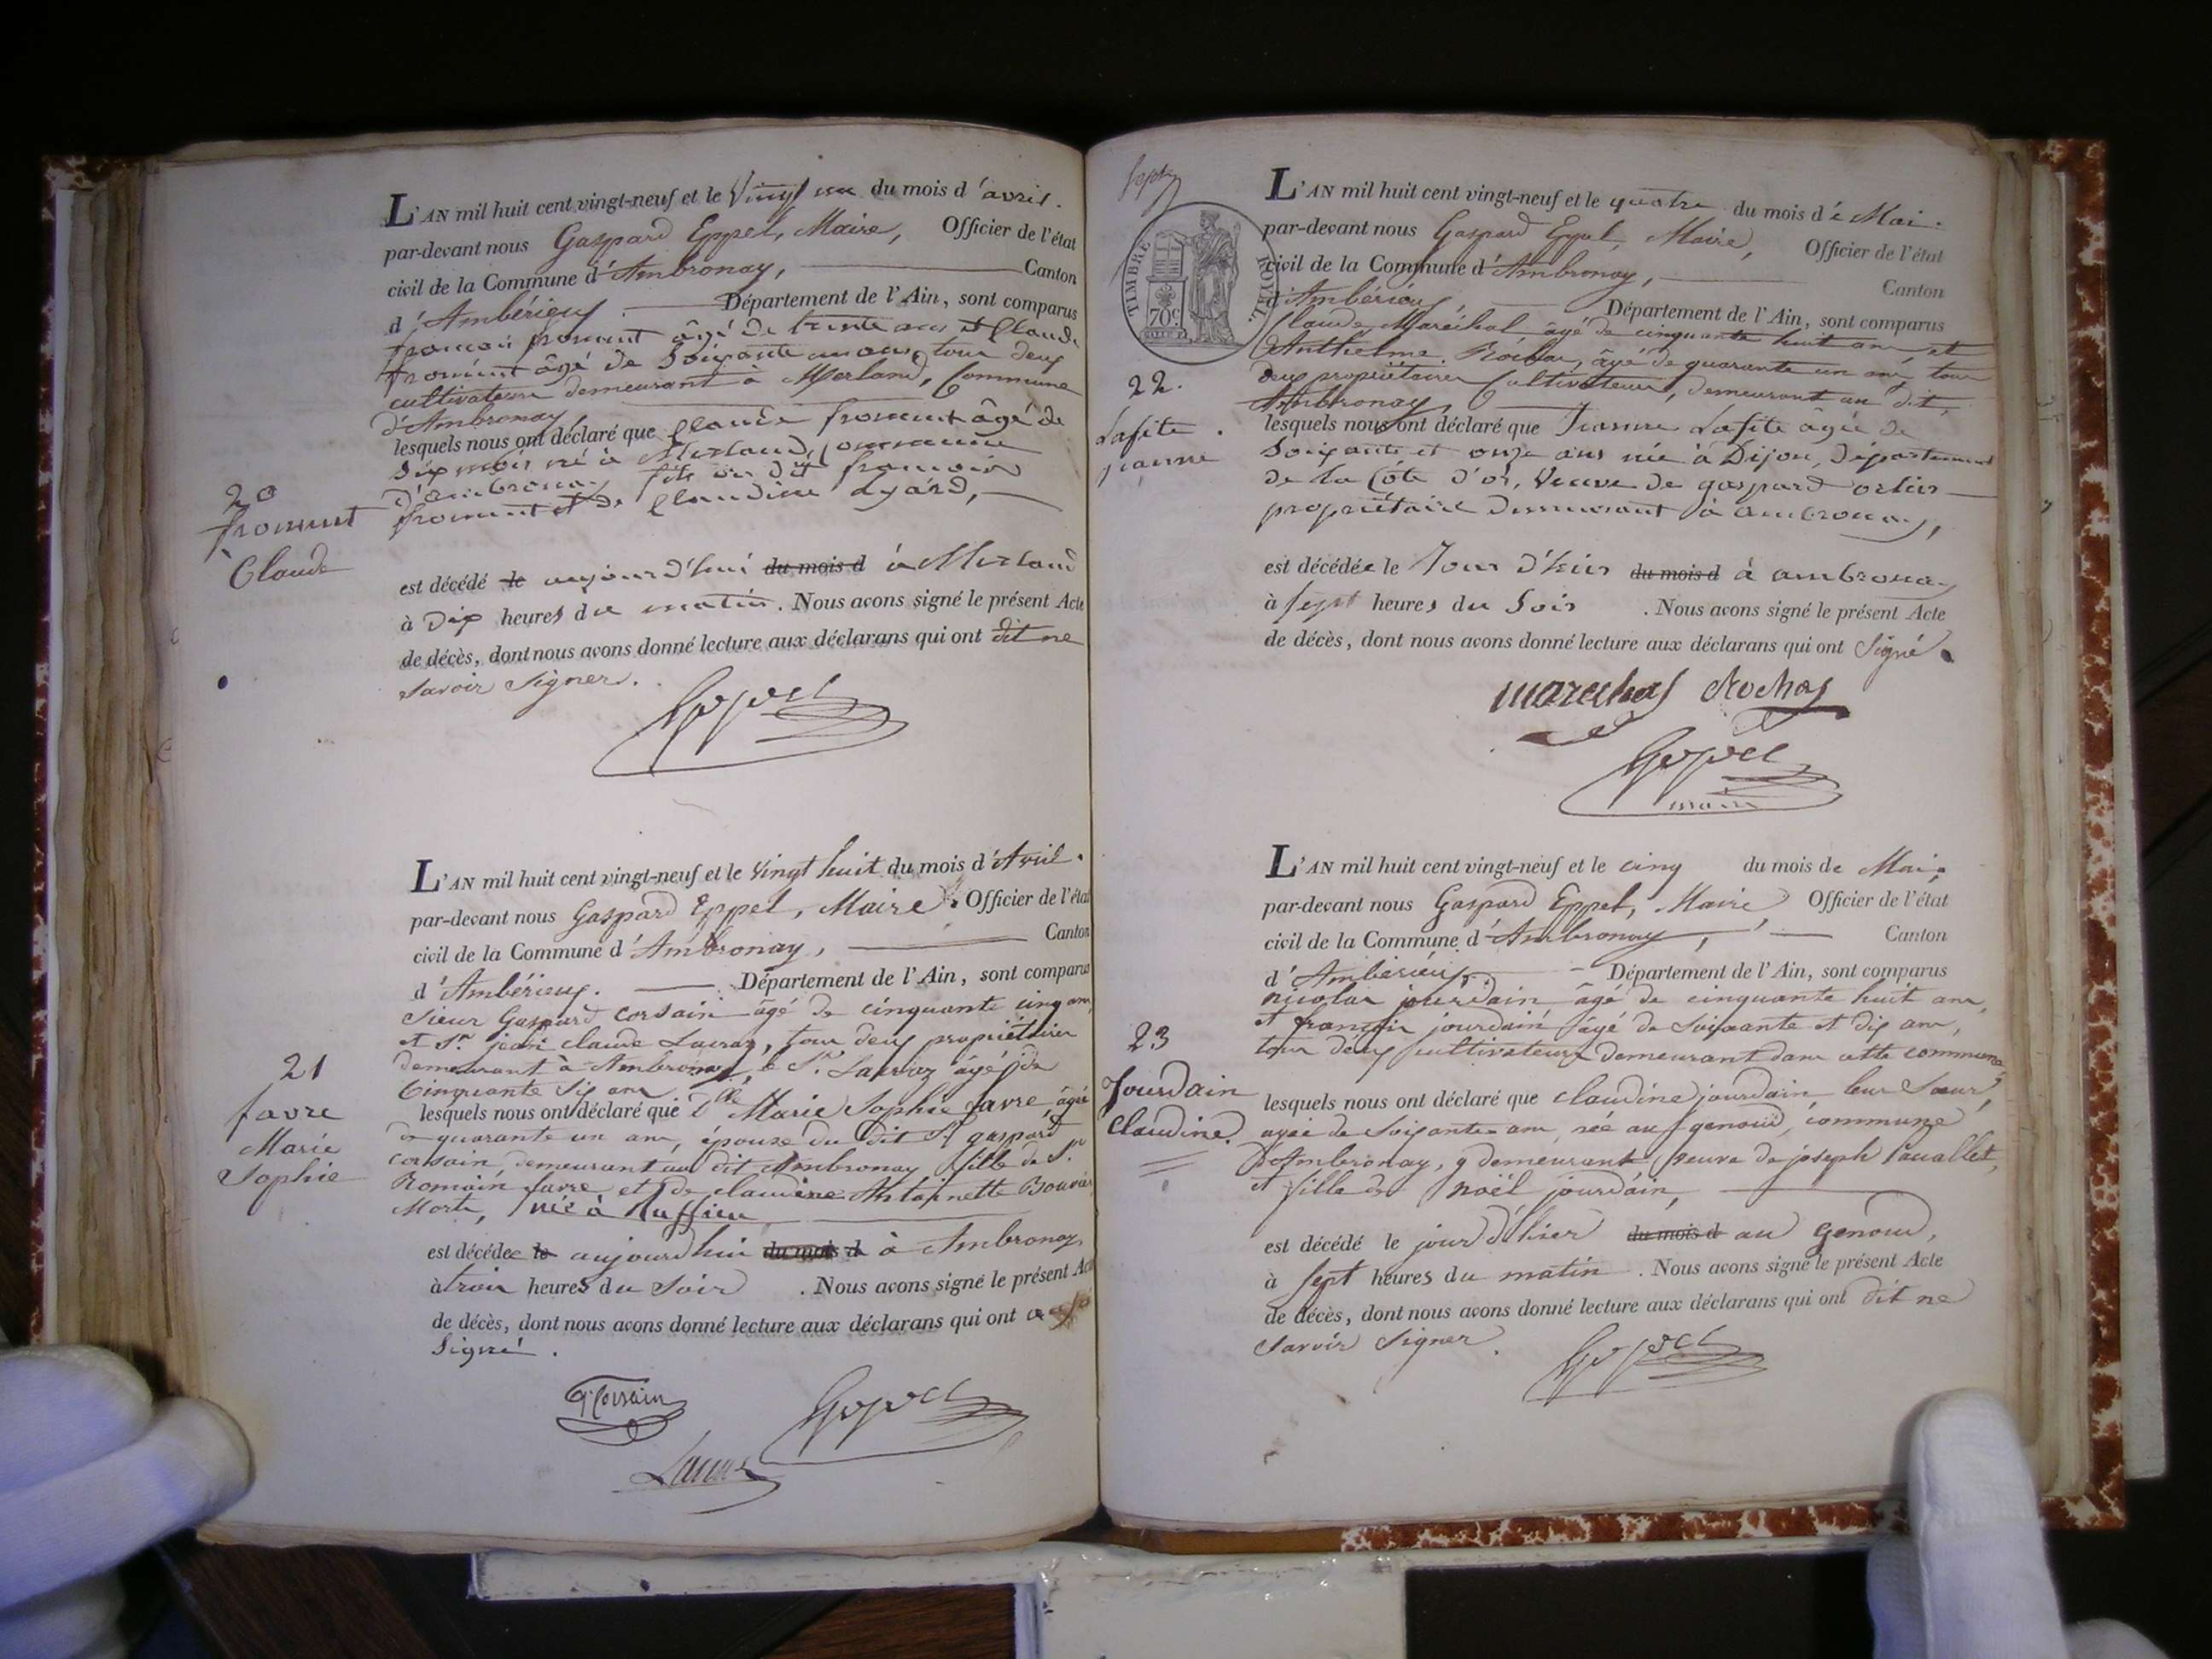 L'AN mil huit cent vingt-neuf et le Vingt un du mois d'avril.
par-devant nous Gaspard Eppel, Maire, Officier de l'état
civil de la Commune d'Ambronay, Canton
d'Ambérieux. Département de l'Ain, sont comparus
françois froment âgé de trente ans et Claude
froment âgé de Soixante un ans, tous deux
cultivateurs demeurant à Merland, Commune
d'Ambronay,
lesquels nous ont déclaré que Claude froment âgé de
dix mois né à Merland, commune
d'ambronay fils du dit françois
froment et de Claudine Lyard,
20
froment
Claude
est décédé le aujourd'hui du mois d à Merland
à Dix heures du matin. Nous avons signé le présent Acte
de décès, dont nous avons donné lecture aux déclarans qui ont dit ne
savoir signer.
Eppel
L'AN mil huit cent vingt-neuf et le Vingt huit du mois d'Avril.
par-devant nous Gaspard Eppel, Maire. Officier de l'état
civil de la Commune d'Ambronay, Canton
d'Ambérieux. Département de l'Ain, sont comparus
Sieur Gaspard Corsain âgé de cinquante cinq ans
et Sr. jean claude Lauraz, tous deux propriétaires
demeurant à Ambronay, le Sr. Lauraz âgé de
Cinquante six ans
21
favre
Marie
Sophie
lesquels nous ont déclaré que Dlle Marie Sophie favre, âgée
de quarante un ans, épouse du dit Sr. gaspard
corsain, demeurant au dit Ambronay fille de Sr.
Romain favre et de claudine Antoinette
Morte, née à Ruffieu
est décédée le aujourd'hui du mois d à Ambronay
à trois heures du Soir. Nous avons signé le présent Acte
de décès, dont nous avons donné lecture aux déclarans qui ont
Signé.
G Corsain
Eppel
Lauraz
Sept
TIMBRE ROYAL.
70c
L'AN mil huit cent vingt-neuf et le quatre du mois de Mai.
par-devant nous Gaspard Eppel, Maire, Officier de l'état
civil de la Commune d'Ambronay, Canton
d'Ambérieux, Département de l'Ain, sont comparus
Claude Maréchal âgé de cinquante huit ans, et
Anthelme Rochas, âgé de quarante un ans, tous
deux propriétaires Cultivateurs, demeurant au dit,
Ambronay,
22.
Lafite.
jeanne
lesquels nous ont déclaré que Jeanne Lafite âgée de
Soixante et onze ans née à Dijon, Département
de la Côte d'or, Veuve de gaspard
propriétaire demeurant à ambronay,
est décédée le Jour d'hier du mois d à ambronay
à sept heures du Soir. Nous avons signé le présent Acte
de décès, dont nous avons donné lecture aux déclarans qui ont Signé.
marechal Rochas
Eppel
maire
L'AN mil huit cent vingt-neuf et le cinq du mois de Mai,
par-devant nous Gaspard Eppel, Maire Officier de l'état
civil de la Commune d'Ambronay, Canton
d'Ambérieux. Département de l'Ain, sont comparus
nicolas jourdain âgé de cinquante huit ans,
et françois jourdain âgé de soixante et dix ans,
tous deux cultivateurs demeurant dans cette commune
23
Jourdain
Claudine.
lesquels nous ont déclaré que claudine jourdain leur Sœur,
agée de Soixante ans, née au genoud, commune
d'Ambronay, y demeurant veuve de joseph
et fille de noël jourdain,
est décédé le jour d'hier du mois d au Genoud,
à sept heures du matin. Nous avons signé le présent Acte
de décès, dont nous avons donné lecture aux déclarans qui ont dit ne
savoir signer.
Eppel